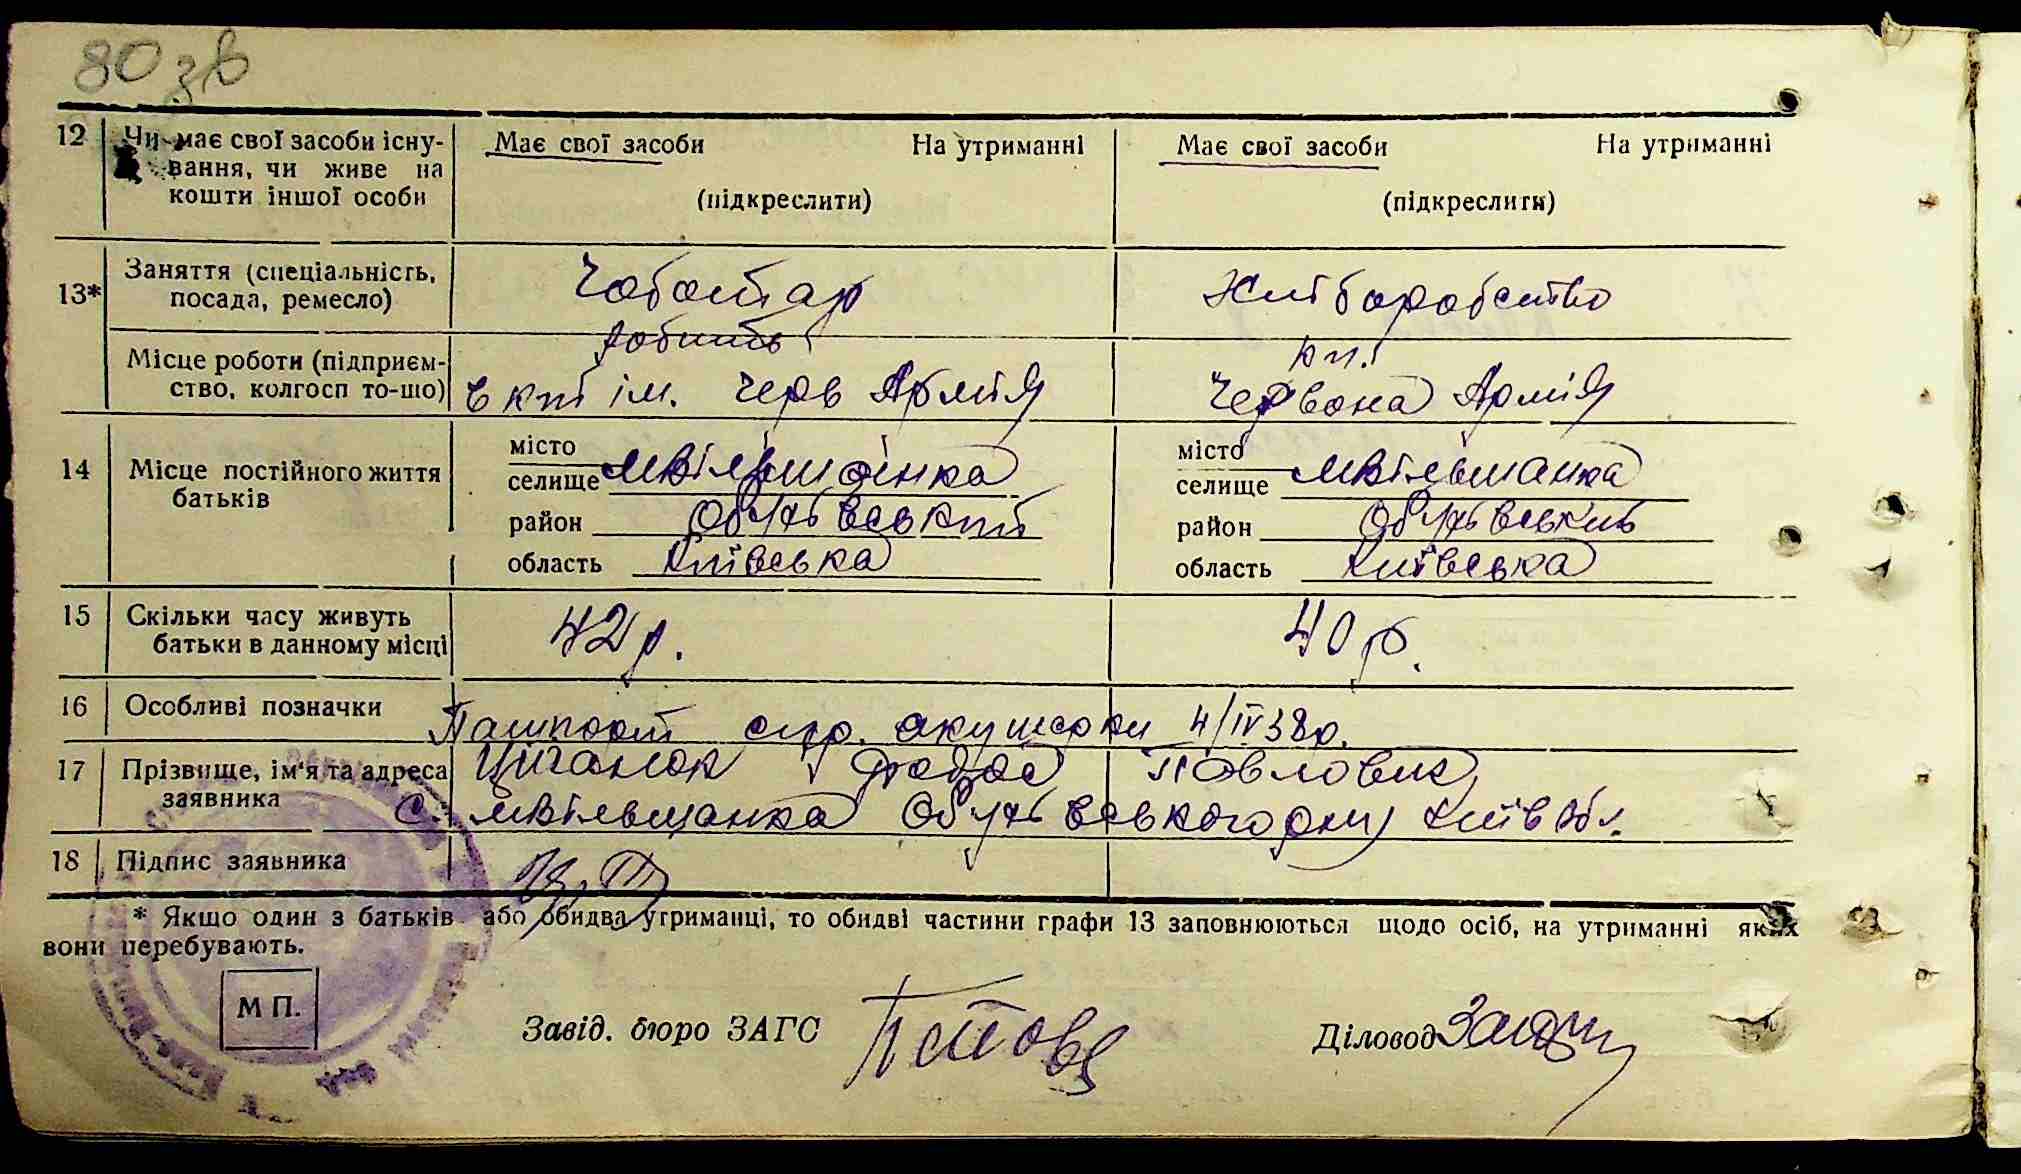 80 зв
12 Чи має свої засоби існу- Має свої засоби На утриманні Має свої засоби На утриманні
вання, чи живе на
кошти іншої особи (підкреслити) (підкреслити)
13* Заняття (спеціальність, Чоботар Хліборобство
посада, ремесло)
робить кп.
Місце роботи (підприєм-
ство, колгосп то-що) в кпі ім. Черв Армія Червона Армія
14 Місце постійного життя місто місто
батьків селище Мвільшанка селище Мвільшанка
район Обухівський район Обухівський
область Київська область Київська
15 Скільки часу живуть 42 р. 40 р.
батьки в данному місці
16 Особливі позначки Пашпорт спр. акушерки 4/IV 38 р.
17 Прізвище, ім'я та адреса Циганок Федос Павлович
заявника с. Мвільшанка Обухівського рну Київ обл.
18 Підпис заявника
* Якщо один з батьків або обидва утриманці, то обидві частини графи 13 заповнюються щодо осіб, на утриманні яких
вони перебувають.
М П.
Завід. бюро ЗАГС Діловод